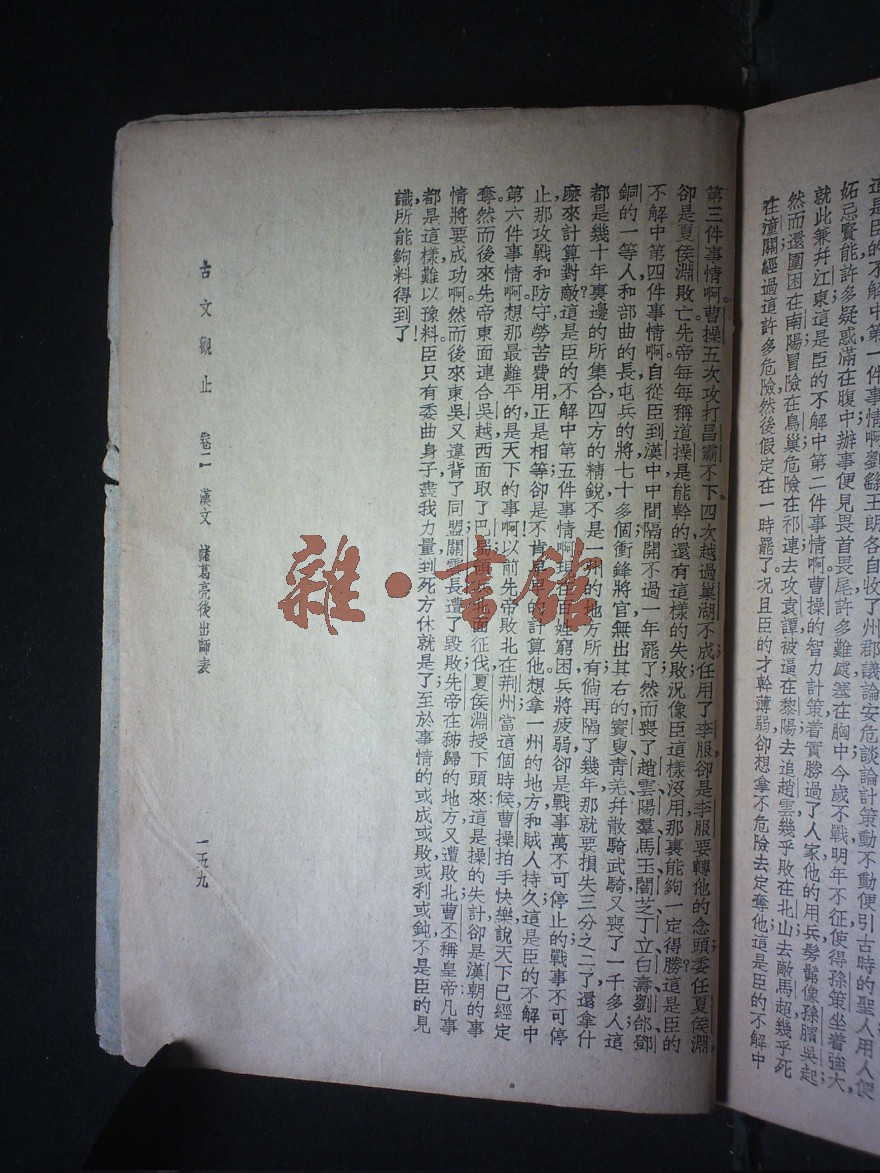 這是臣的不解中第一件事情啊。劉繇王朗各自收了州郡,議論安危,談論計策,動不動便引古時的聖人;用人便
妬忌賢能,許多疑惑滿在腹中,辦事便見畏首畏尾,許多難處塞在胸中;今歲不戰,明年不征,使得孫策坐着強大,
就此兼幷江東;這是臣的不解中第二件事情啊。曹操的智力計策,着實勝過了人家,他的用兵,髣髴像孫臏吳起;
然而還圍困在南陽,冒險在烏巢,危險在祁連,去攻袁譚,被逼在黎陽;去追趙雲,幾乎敗在北山;去敵馬超,幾乎死
在潼關;經過這許多危險,然後假定在一時罷了。况且臣的才幹薄弱,卻想拿不危險去定奪他,這是臣的不解中
第三件事情啊。曹操五次攻打昌霸不下,四次越過巢湖不成;任用了李服,卻是李服要轉他的念頭;委任夏侯淵,
卻是夏侯淵敗亡。先帝每每稱道操是能幹的,還有這樣的失敗,況像臣這樣沒用,那裏能夠一定得勝?這是臣的
不解中第四件事情啊。自從臣到漢中,中間隔開不過一年罷了;然而喪了趙雲、陽羣、馬玉、閻芝、丁立、白壽、劉郃、鄧
銅的一等人,和部曲的長,屯兵的將七十多個;衝鋒將官,無出其右的;竇叟青羌并散騎武騎,又喪了一千多人;這
都是幾十年裏邊的所集合四方的精銳,不是一州的地方所有;倘再隔了幾年,那就要損失三分之二了,還拿什
麼來計算對敵?這是臣的不解中第五件事情啊。現在百姓窮困,兵將疲弱,卻是戰事萬不可停止的;戰事不可停
止,那攻戰和防守,勞苦費用,正是相等;卻是不肯早早的計算他,想拿一州的地方,和賊人持久;這是臣的不解中
第六件事情啊。想那最難平的,是天下的事啊!以前先帝敗北在荆州,當這個時候,曹操拍手快樂,說天下已經定
奪。然而後來先帝東面連合吳越,西面取了巴蜀,領兵北面征伐,夏侯淵授下頭來;這是操的失計,卻是漢朝的事
情將要成功啊。然而後來東吳又違背了同盟,關雲長遭了毀敗,先帝在秭歸的地方,又遭敗北,曹丕稱皇帝;凡事
都是這樣,難以豫料。臣只有委曲身子,盡我力量,到死方休就是了;至於事情的或成或敗,或利或鈍,不是臣的見
識所能夠料得到了!
古文觀止　卷二　漢文　諸葛亮後出師表　一五九
雜·書館